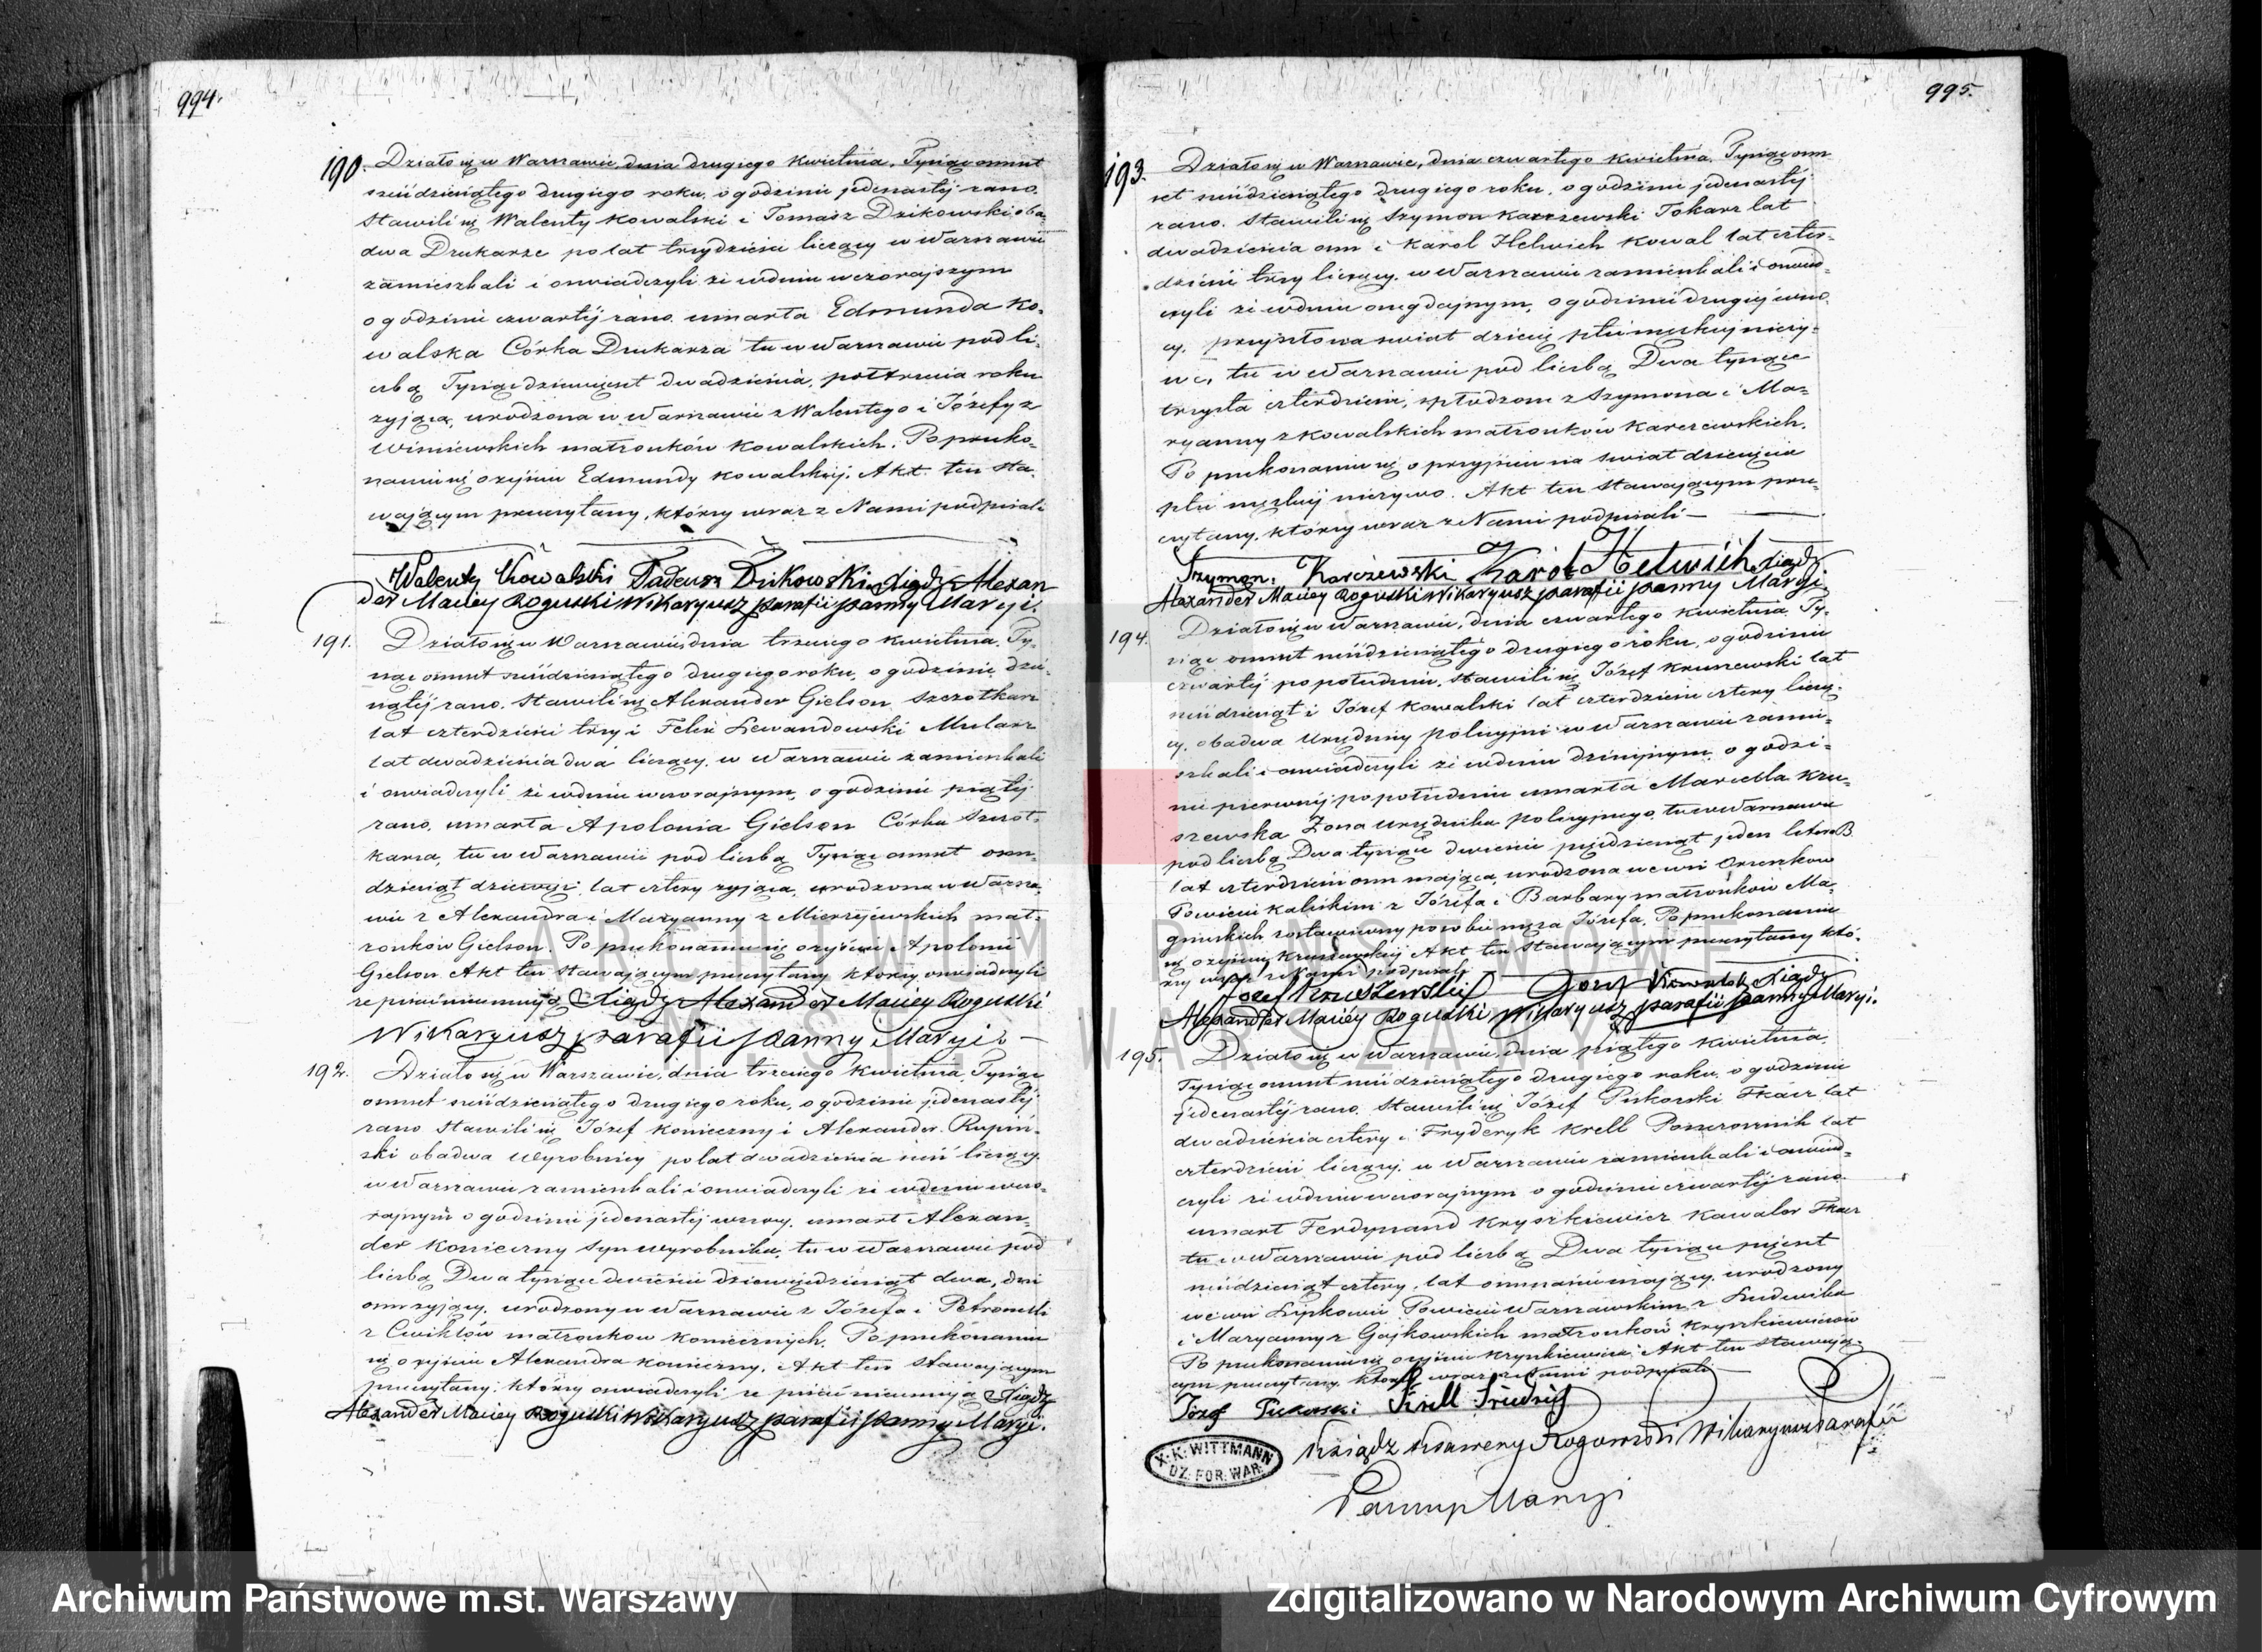 994.
190. Działo się w Warszawie, dnia drugiego Kwietnia, Tysiąc ośmset
sześćdziesiątego drugiego roku, o godzinie jedenastéj rano.
Stawili się Walenty Kowalski i Tomasz Dzikowski oba-
dwa Drukarze po lat trzydzieści liczący w Warszawie
zamieszkali i oświadczyli że w dniu wczorajszym
o godzinie czwartéj rano umarła Edmunda Ko-
walska Córka Drukarza tu w Warszawie pod li-
czbą Tysiąc dziewięćset dwadzieścia, półtrzecia roku
żyjąca, urodzona w Warszawie z Walentego i Józefy z
Wiśniewskich małżonków Kowalskich. Po przeko-
naniu się o zejściu Edmundy Kowalskiéj. Akt ten sta-
wającym przeczytany, którzy wraz z Nami podpisali
Walenty Kowalski Tadeusz Dzikowski Xiądz Alexan
der Maciey Roguski Wikaryusz parafii panny Maryi.
191. Działo się w Warszawie, dnia trzeciego Kwietnia, Ty-
siąc ośmset sześćdziesiątego drugiego roku, o godzinie dzie-
siątéj rano. Stawili się Alexander Gielson Szczotkarz
lat czterdzieści trzy i Felix Lewandowski Mularz
lat dwadzieścia dwa liczący, w Warszawie zamieszkali
i oświadczyli że w dniu wczorajszym, o godzinie piątéj
rano, umarła Apolonia Gielson Córka Szczot-
karza, tu w Warszawie pod liczbą Tysiąc ośmset ośm-
dziesiąt dziewięć, lat cztery żyjąca, urodzona w Warsza-
wie z Alexandra i Maryanny z Mierzejewskich mał-
żonków Gielson. Po przekonaniu się o zejściu Apolonii
Gielson Akt ten stawającym przeczytany którzy oświadczyli
że pisać nieumieją Xiądz Alexander Maciey Roguski
Wikaryusz parafii panny Maryi
192. Działo się w Warszawie, dnia trzeciego Kwietnia, Tysiąc
ośmset sześćdziesiątego drugiego roku, o godzinie jedenastéj
rano Stawili się Józef Konieczny i Alexander Rupiń-
ski obadwa Wyrobnicy po lat dwadzieścia sześć liczący
w Warszawie zamieszkali i oświadczyli że w dniu wczo-
rajszym o godzinie jedenastéj w nocy, umarł Alexan-
der Konieczny syn wyrobnika, tu w Warszawie pod
liczbą Dwa tysiące dwieście dziewięćdziesiąt dwa, dni
ośm żyjący, urodzony w Warszawie z Józefa i Petronelli
z Cwiklów małżonków Koniecznych. Po przekonaniu
się o zejściu Alexandra Konieczny, Akt ten stawającym
przeczytany, którzy oświadczyli że pisać nieumieją Xiądz
Alexander Maciey Roguski Wikaryusz parafii panny Maryi.
995.
193. Działo się w Warszawie, dnia czwartego Kwietnia, Tysiąc ośm
set sześćdziesiątego drugiego roku, o godzinie jedenastéj
rano. Stawili się Szymon Karczewski Tokarz lat
dwadzieścia ośm i Karol Helwich Kowal lat czter-
dzieści trzy liczący, w Warszawie zamieszkali i oświad-
czyli że w dniu onegdajszym, o godzinie drugiéj w no-
cy, przyszło na świat dziecię płci męzkiej nieży-
we, tu w Warszawie pod liczbą Dwa tysiące
trzysta czterdzieści, spłodzone z Szymona i Ma-
ryanny z Kowalskich małżonków Karczewskich.
Po przekonaniu się o przyjściu na świat dziecięcia
płci męzkiej nieżywo. Akt ten stawającym prze-
czytany, którzy wraz z Nami podpisali
Szymon Karczewski Karol Helwich Xiądz
Alexander Maciey Roguski Wikaryusz parafii panny Maryi
194. Działo się w Warszawie, dnia czwartego Kwietnia, Ty-
siąc ośmset sześćdziesiątego drugiego roku, o godzinie
czwartéj po południu, stawili się Józef Kruszewski lat
sześćdziesiąt i Józef Kowalski lat czterdzieści cztery liczą-
cy, obadwa Urzędnicy policyjni w Warszawie zamie-
szkali i oświadczyli że w dniu dzisiejszym, o godzi-
nie pierwszéj po południu umarła Marcella Kru-
szewska Żona urzędnika policyjnego, tu w Warszawie
pod liczbą Dwa tysiące dwieście pięćdziesiąt jeden litera B.
lat czterdzieści ośm mająca, urodzona we wsi
Powiecie Kaliskim z Józefa i Barbary małżonków Ma-
zostawiwszy po sobie męża Józefa. Po przekonaniu
się o zejściu Kruszewskiéj Akt ten stawającym przeczytany któ-
rzy wraz z Nami podpisali
Józef Kruszewski Józef Kowalski Xiądz
Alexander Maciey Roguski Wikaryusz parafii panny Maryi.
195. Działo się w Warszawie, dnia piątego Kwietnia,
Tysiąc ośmset sześćdziesiątego drugiego roku, o godzinie
jedenastéj rano. Stawili się Józef Piskorski Tkacz lat
dwadzieścia cztery i Fryderyk Krell Powroźnik lat
czterdzieści liczący, w Warszawie zamieszkali i oświad-
czyli że w dniu wczorajszym o godzinie czwartéj rano
umarł Ferdynand Kryszkiewicz Kawaler Tkacz
tu w Warszawie pod liczbą Dwa tysiące pięćset
sześćdziesiąt cztery, lat ośmnaście mający, urodzony
we wsi Lipkowie Powiecie Warszawskim z Ludwika
i Maryanny z Gajkowskich małżonków Kryszkiewiczów
Po przekonaniu się o zejściu Kryszkiewicza, Akt ten stawają-
cym przeczytany, którzy wraz z Nami podpisali
Józef Piskorski Krell Friedrich
Ksiądz Ksawery Rogowski Wikaryusz Parafii
Panny Maryi
X. K. WITTMANN
DZ. FOR. WAR.
ARCHIWUM PAŃSTWOWE
M.ST. WARSZAWY
Archiwum Państwowe m.st. Warszawy
Zdigitalizowano w Narodowym Archiwum Cyfrowym